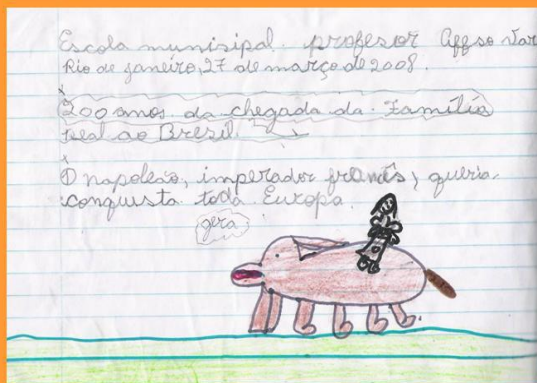 Escola munisipal profesor Affso Var
Rio de janeiro, 27 de março de 2008.
200 anos da chegada da Família
real ao Bresil.
O napoleão, imperador franês, queria
conquista toda Europa.
gera